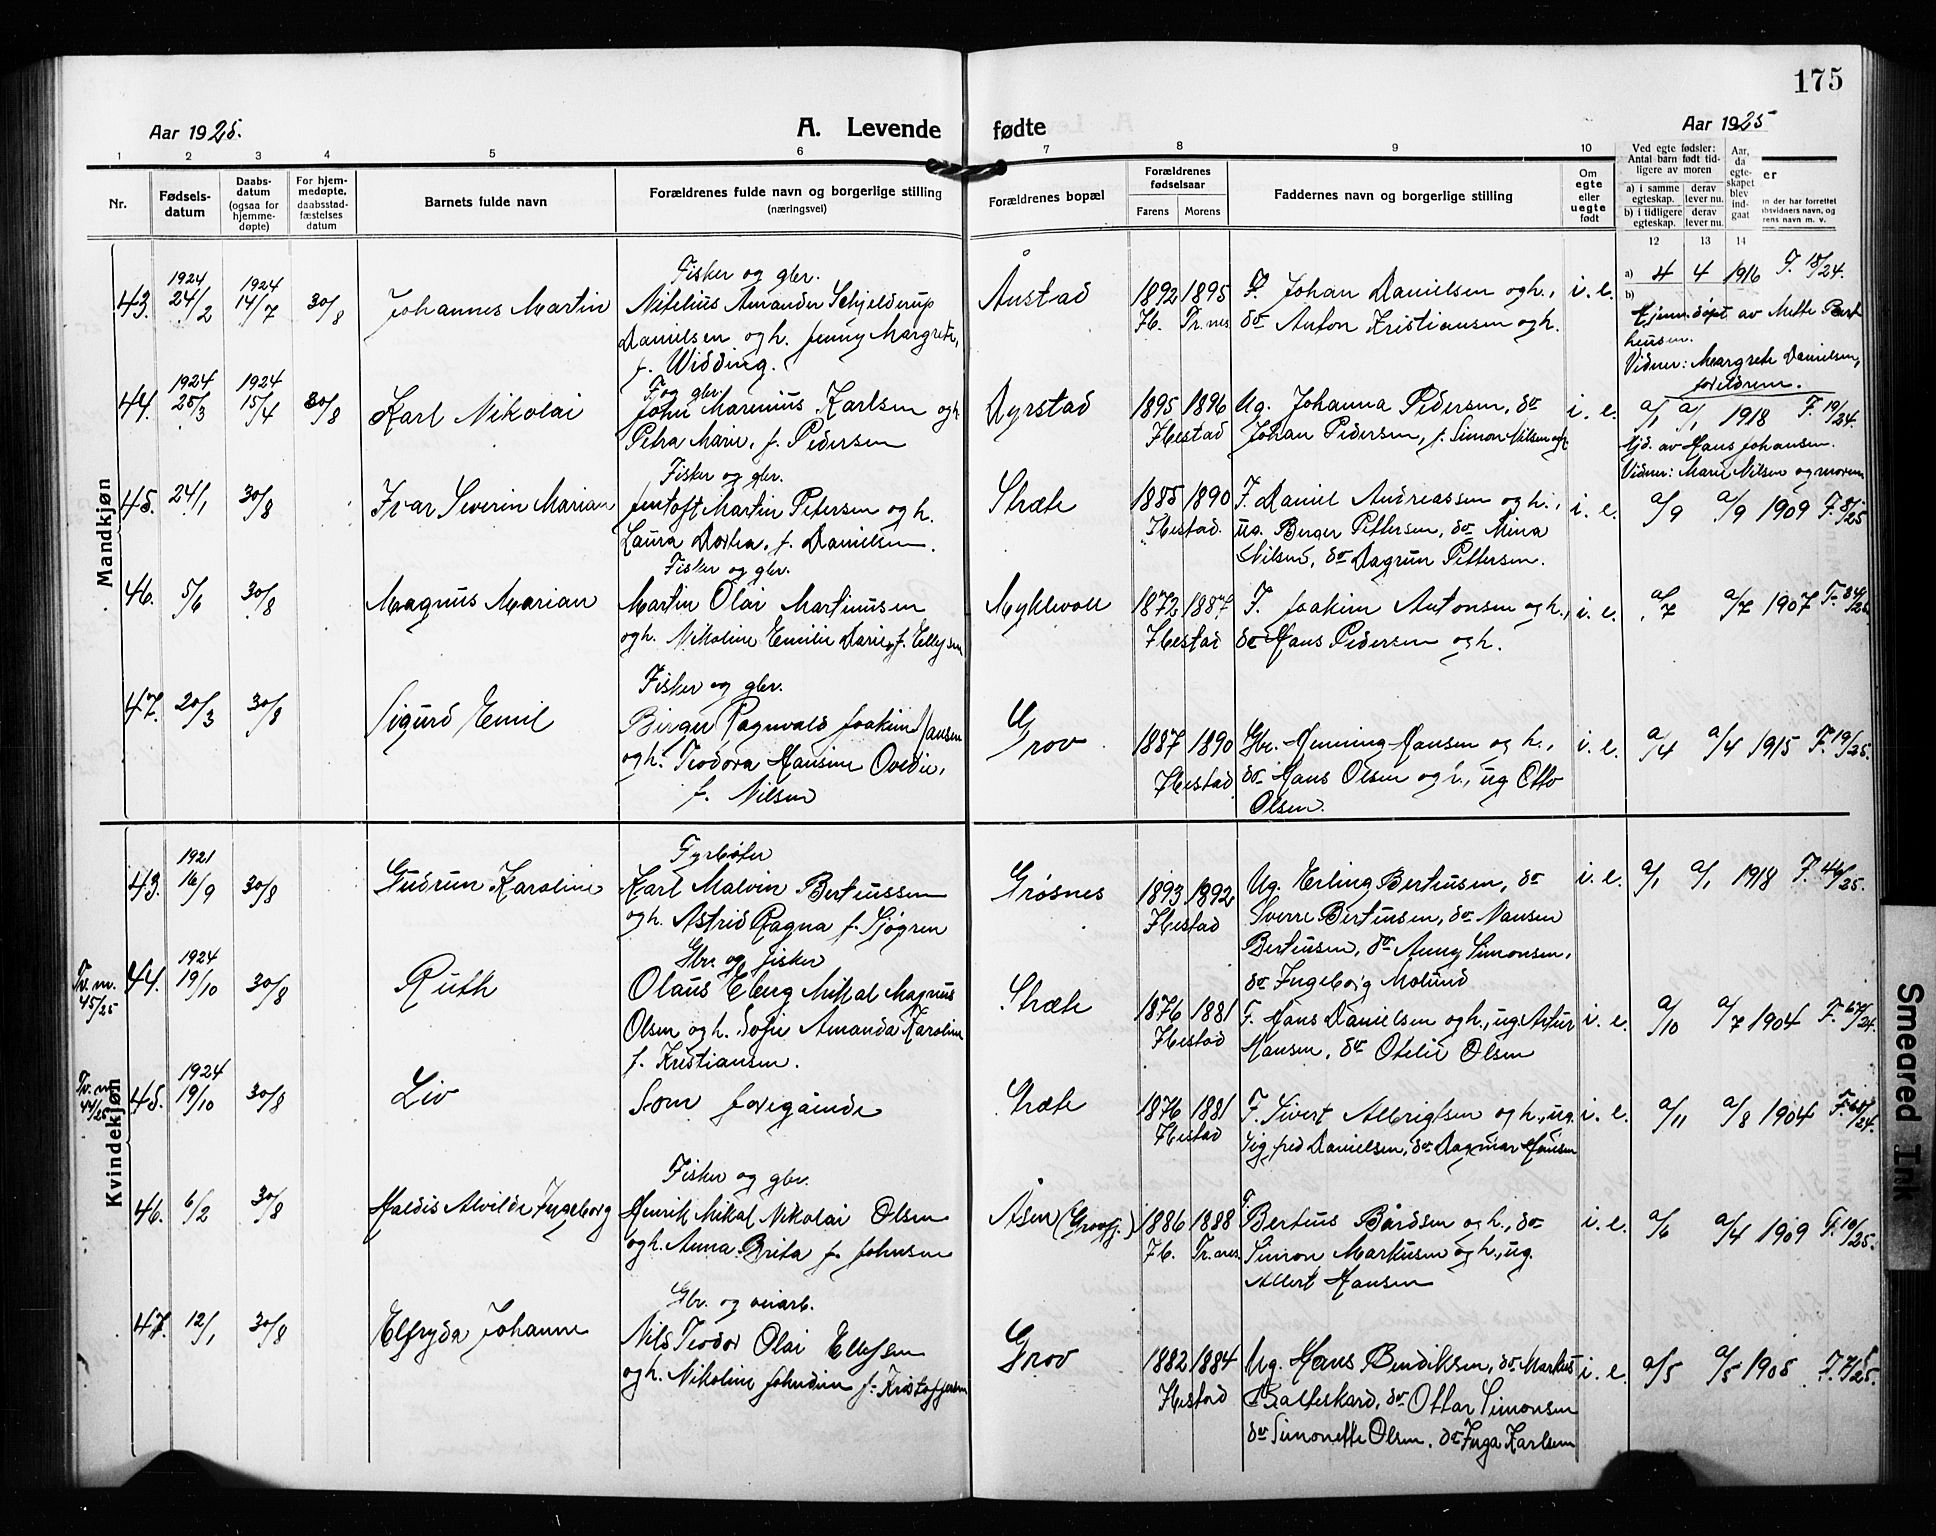 175
Aar 1925.
A. Levende fødte
Aar 1925
1 2 3 4 5 6 7 8 9 10
Nr.
Fødsels-
datum
Daabs-
datum
(ogsaa for
hjemme-
døpte)
For hjem-
medøpte,
daabsstad-
fæstelses
datum
Barnets fulde navn
Forældrenes fulde navn og borgerlige stilling
(næringsvei)
Forældrenes bopæl
Forældrenes
fødselsaar
Farens Morens
Faddernes navn og borgerlige stilling
Om
egte
eller
uegte
født
Ved egte fødsler:
Antal barn født tid-
ligere av moren
a) i samme
egteskap.
derav
lever nu.
b) i tidligere
egteskap.
derav
lever nu.
Aar,
da
egte-
skapet
blev
ind-
gaat
12 13 14
Mandkjøn
43. 1924 24/2 1924 14/7 30/8 Johannes Martin
Fisker og gbr.
Nikelius Amandus Schjelderup
Danielsen og h. Jenny Margrete,
f. Widding.
Åustad 1892 1895 F. Johan Danielsen og h., i. e.
H. Tr.nes do Anton Kristiansen og h.
a) 4 4 1916 F. 18/24.
b)
Hjemmedöpt av Mette Bert
heusen.
Vidner: Margrete Danielsen,
foreldrene.
44. 1924 25/3 1924 15/4 30/8 Karl Nikolai
F. og gbr.
John Marenius Karlsen og h
Petra Marie, f. Pedersen
Dyrstad 1895 1896 Ug. Johanna Pedersen, do i. e.
Ibestad Johan Pedersen, f. Simon Nilsen og h
a/1 a/1 1918 F. 19/24.
Hjd. av Hans Johansen.
Vidner: Marie Nilsen og moren
45. 24/1 30/8 Ivar Severin Marian
Fisker og gbr.
Jentoft Martin Petersen og h.
Laura Dortea, f. Danielsen.
Stræte 1885 1890 F. Daniel Andreassen og h., i. e.
Ibestad. ug. Berger Pettersen, do Mina
Nilsen, do Dagrun Pettersen.
a/9 a/9 1909 F. 8/25
46. 5/6 30/8 Magnus Marian
Fisker og gbr.
Martin Olai Martinusen
og h. Nikoline Emilie Marie, f. Ellefsen
Myklevoll 1872 1887 F. Joakim Antonsen og h., i. e.
Ibestad do Hans Pedersen og h.
a/7 a/7 1907
47. 20/3 30/8 Sigurd Emil
Fisker og gbr.
Birger Ragnvald Joakim Hansen
og h. Teodora Hansine Ovedie,
f. Nilsen
Grov 1887 1890 Gbr. Henning Hansen og h., i. e.
Ibestad do Hans Olsen og h., ug Otto
Olsen.
a/4 a/4 1915 F. 19/25.
Kvindekjøn
43. 1921 16/9 30/8 Gudrun Karoline
Fyrbøter
Karl Malvin Berteussen
og h. Astrid Ragna f. Sjøgren
Grøsnes 1893 1892 Ug. Erling Berteusen, do i. e.
Ibestad Sverre Berteusen, do Nansen
Berteusen, do Anny Simonsen,
do Ingeborg Molund
a/1 a/1 1918 F. 44/25.
Tv. m.
45/25
44. 1924 19/10 30/8 Ruth
Gbr. og fisker
Olaus Eberg Mikal Magnus
Olsen og h. Sofie Amanda Karoline
f. Kristiansen.
Stræte 1876 1881 F. Hans Danielsen og h., ug. Artur i. e.
Ibestad Hansen, do Otelie Olsen
a/10 a/7 1904 F. 67/24.
Tv. m
44/25
45. 1924 19/10 30/8 Liv
Som foregående
Stræte 1876 1881 F. Sivert Albrigtsen og h., ug. i. e.
Ibestad Sigfred Danielsen, do Dagmar Hansen
a/11 a/8 1904 F. 68/24.
46. 6/2 30/8 Haldis Alvilde Ingeborg
Fisker og gbr.
Henrik Mikal Nikolai Olsen
og h. Anna Brita f. Johnsen
Åsen (Grovfj.) 1886 1888 F. Berteus Bårdsen og h., do i. e.
H. Tr.nes. Simon Markusen og h., ug.
Albert Hansen
a/6 a/4 1909 F. 10/25.
47. 12/1 30/8 Elfryda Johanne
Gbr. og veiarb.
Nils Teodor Olai Ellefsen
og h. Nikoline Johndine f. Kristoffersen
Grov 1882 1884 Ug. Hans Bendiksen, do Markus i. e.
Ibestad Balteskard, do Ottar Simonsen
do Simonette Olsen, do Inga Karlsen
a/5 a/5 1905 F. 7/25.
Smeared Ink